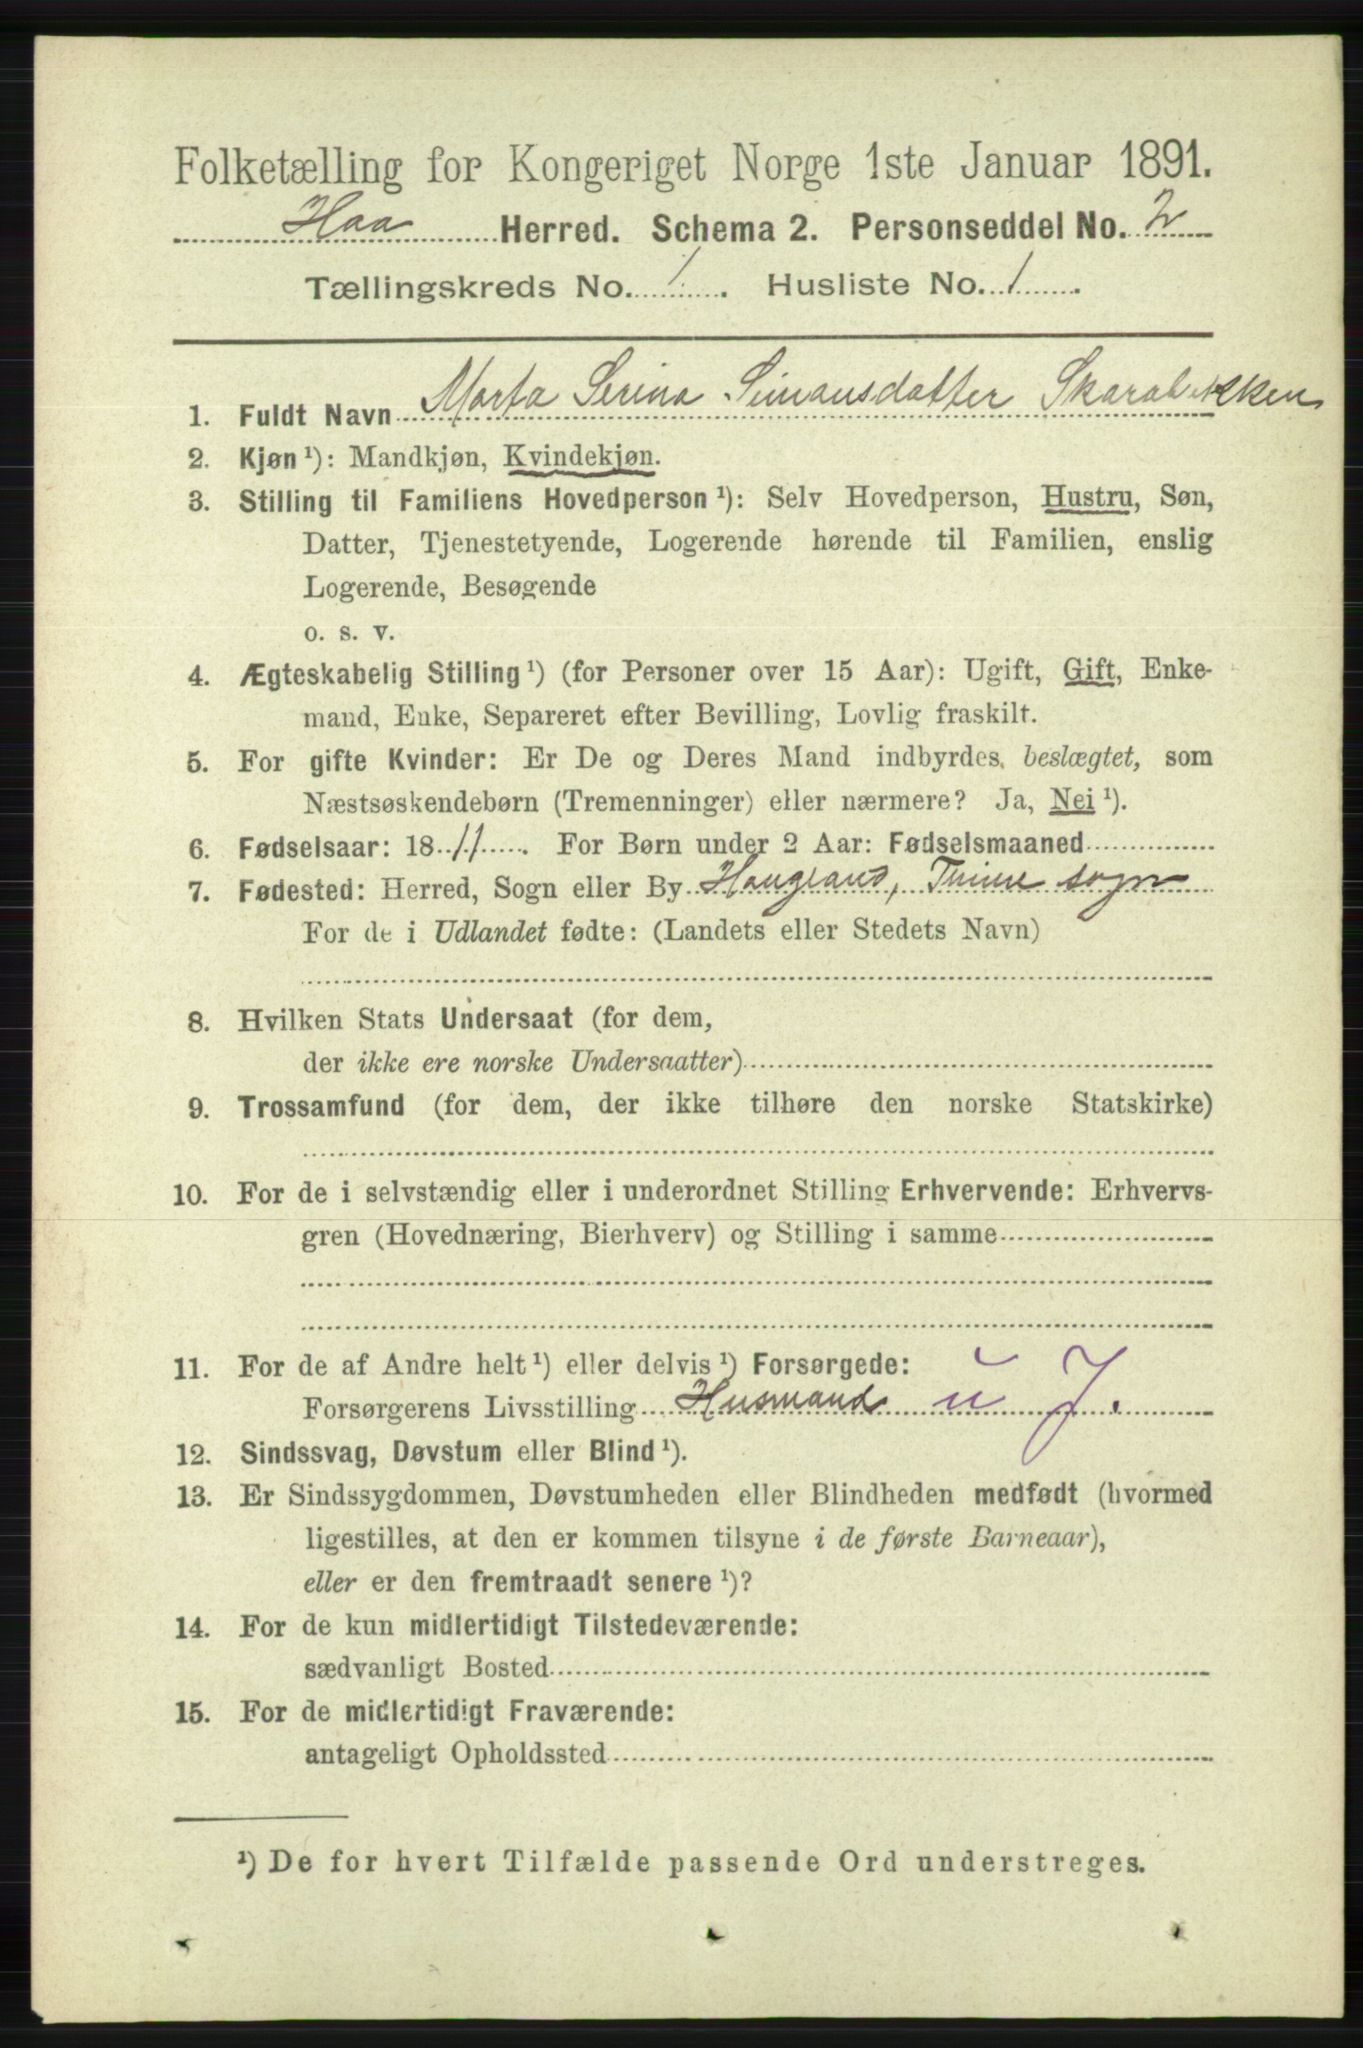 Folketælling for Kongeriget Norge 1ste Januar 1891.
Haa Herred. Schema 2. Personseddel No. 2
Tællingskreds No. 1. Husliste No. 1.
1. Fuldt Navn Marta Serina Simansdatter Skarabekken
2. Kjøn ¹): Mandkjøn, Kvindekjøn.
3. Stilling til Familiens Hovedperson ¹): Selv Hovedperson, Hustru, Søn,
Datter, Tjenestetyende, Logerende hørende til Familien, enslig
Logerende, Besøgende
o. s. v.
4. Ægteskabelig Stilling ¹) (for Personer over 15 Aar): Ugift, Gift, Enke-
mand, Enke, Separeret efter Bevilling, Lovlig fraskilt.
5. For gifte Kvinder: Er De og Deres Mand indbyrdes beslægtet, som
Næstsøskendebørn (Tremenninger) eller nærmere? Ja, Nei ¹).
6. Fødselsaar: 18 11. For Børn under 2 Aar: Fødselsmaaned
7. Fødested: Herred, Sogn eller By Haugland, Thime sogn
For de i Udlandet fødte: (Landets eller Stedets Navn)
8. Hvilken Stats Undersaat (for dem,
der ikke ere norske Undersaatter)
9. Trossamfund (for dem, der ikke tilhøre den norske Statskirke)
10. For de i selvstændig eller i underordnet Stilling Erhvervende: Erhvervs-
gren (Hovednæring, Bierhverv) og Stilling i samme
11. For de af Andre helt ¹) eller delvis ¹) Forsørgede:
Forsørgerens Livsstilling Husmand u J.
12. Sindssvag, Døvstum eller Blind ¹).
13. Er Sindssygdommen, Døvstumheden eller Blindheden medfødt (hvormed
ligestilles, at den er kommen tilsyne i de første Barneaar),
eller er den fremtraadt senere ¹)?
14. For de kun midlertidigt Tilstedeværende:
sædvanligt Bosted
15. For de midlertidigt Fraværende:
antageligt Opholdssted
¹) De for hvert Tilfælde passende Ord understreges.